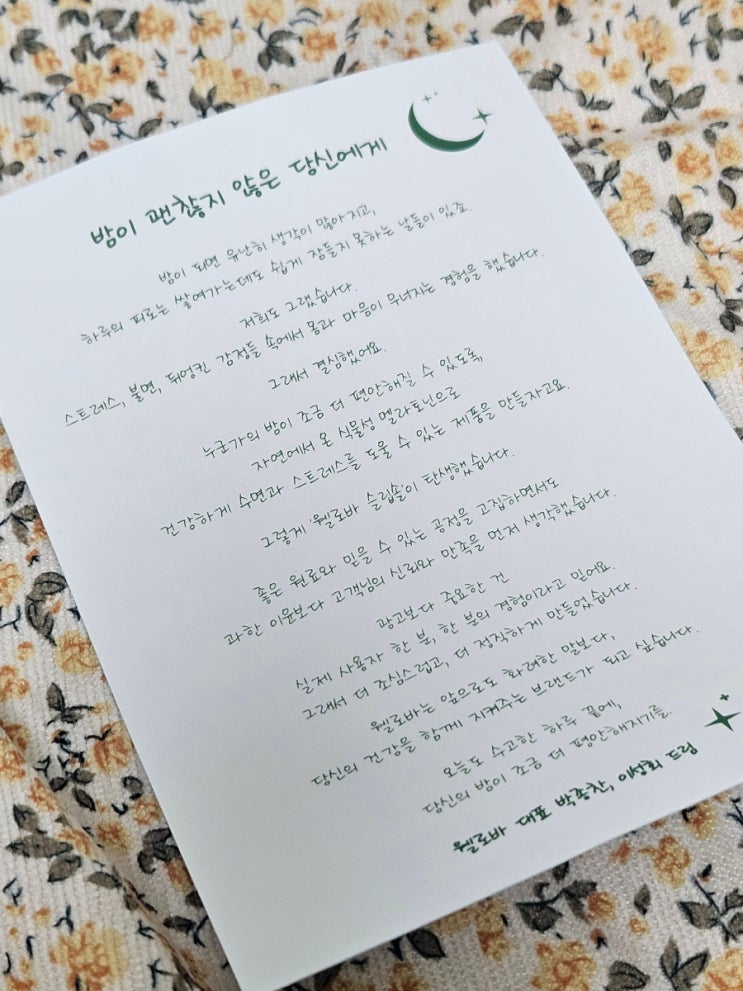 밤이 괜찮지 않은 당신에게
밤이 되면 유난히 생각이 많아지고,
하루의 피로는 쌓여가는데도 쉽게 잠들지 못하는 날들이 있죠.
저희도 그랬습니다.
스트레스, 불면, 뒤엉킨 감정들 속에서 몸과 마음이 무너지는 경험을 했습니다.
그래서 결심했어요.
누군가의 밤이 조금 더 편안해질 수 있도록,
자연에서 온 식물성 멜라토닌으로
건강하게 수면과 스트레스를 도울 수 있는 제품을 만들자고요.
그렇게 '웰로바 슬립솔'이 탄생했습니다.
좋은 원료와 믿을 수 있는 공정을 고집하면서도
과한 이윤보다 고객님의 신뢰와 만족을 먼저 생각했습니다.
광고보다 중요한 건
실제 사용자 한 분, 한 분의 경험이라고 믿어요.
그래서 더 조심스럽고, 더 정직하게 만들었습니다.
웰로바는 앞으로도 화려한 말보다,
당신의 건강을 함께 지켜주는 브랜드가 되고 싶습니다.
오늘도 수고한 하루 끝에,
당신의 밤이 조금 더 편안해지기를.
웰로바 대표 박종찬, 이성희 드림